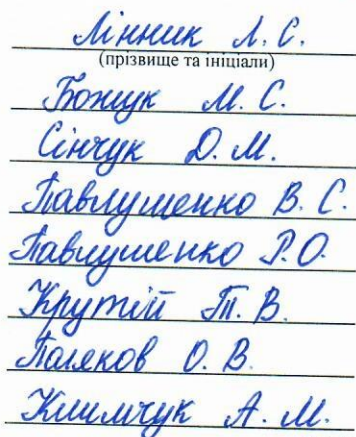 Лінник Л. С.
(прізвище та ініціали)
Божук М. С.
Сінчук Д. М.
Павлушенко В. С.
Павлушенко Р. О.
Крутій Т. В.
Поляков О. В.
Климчук А. М.